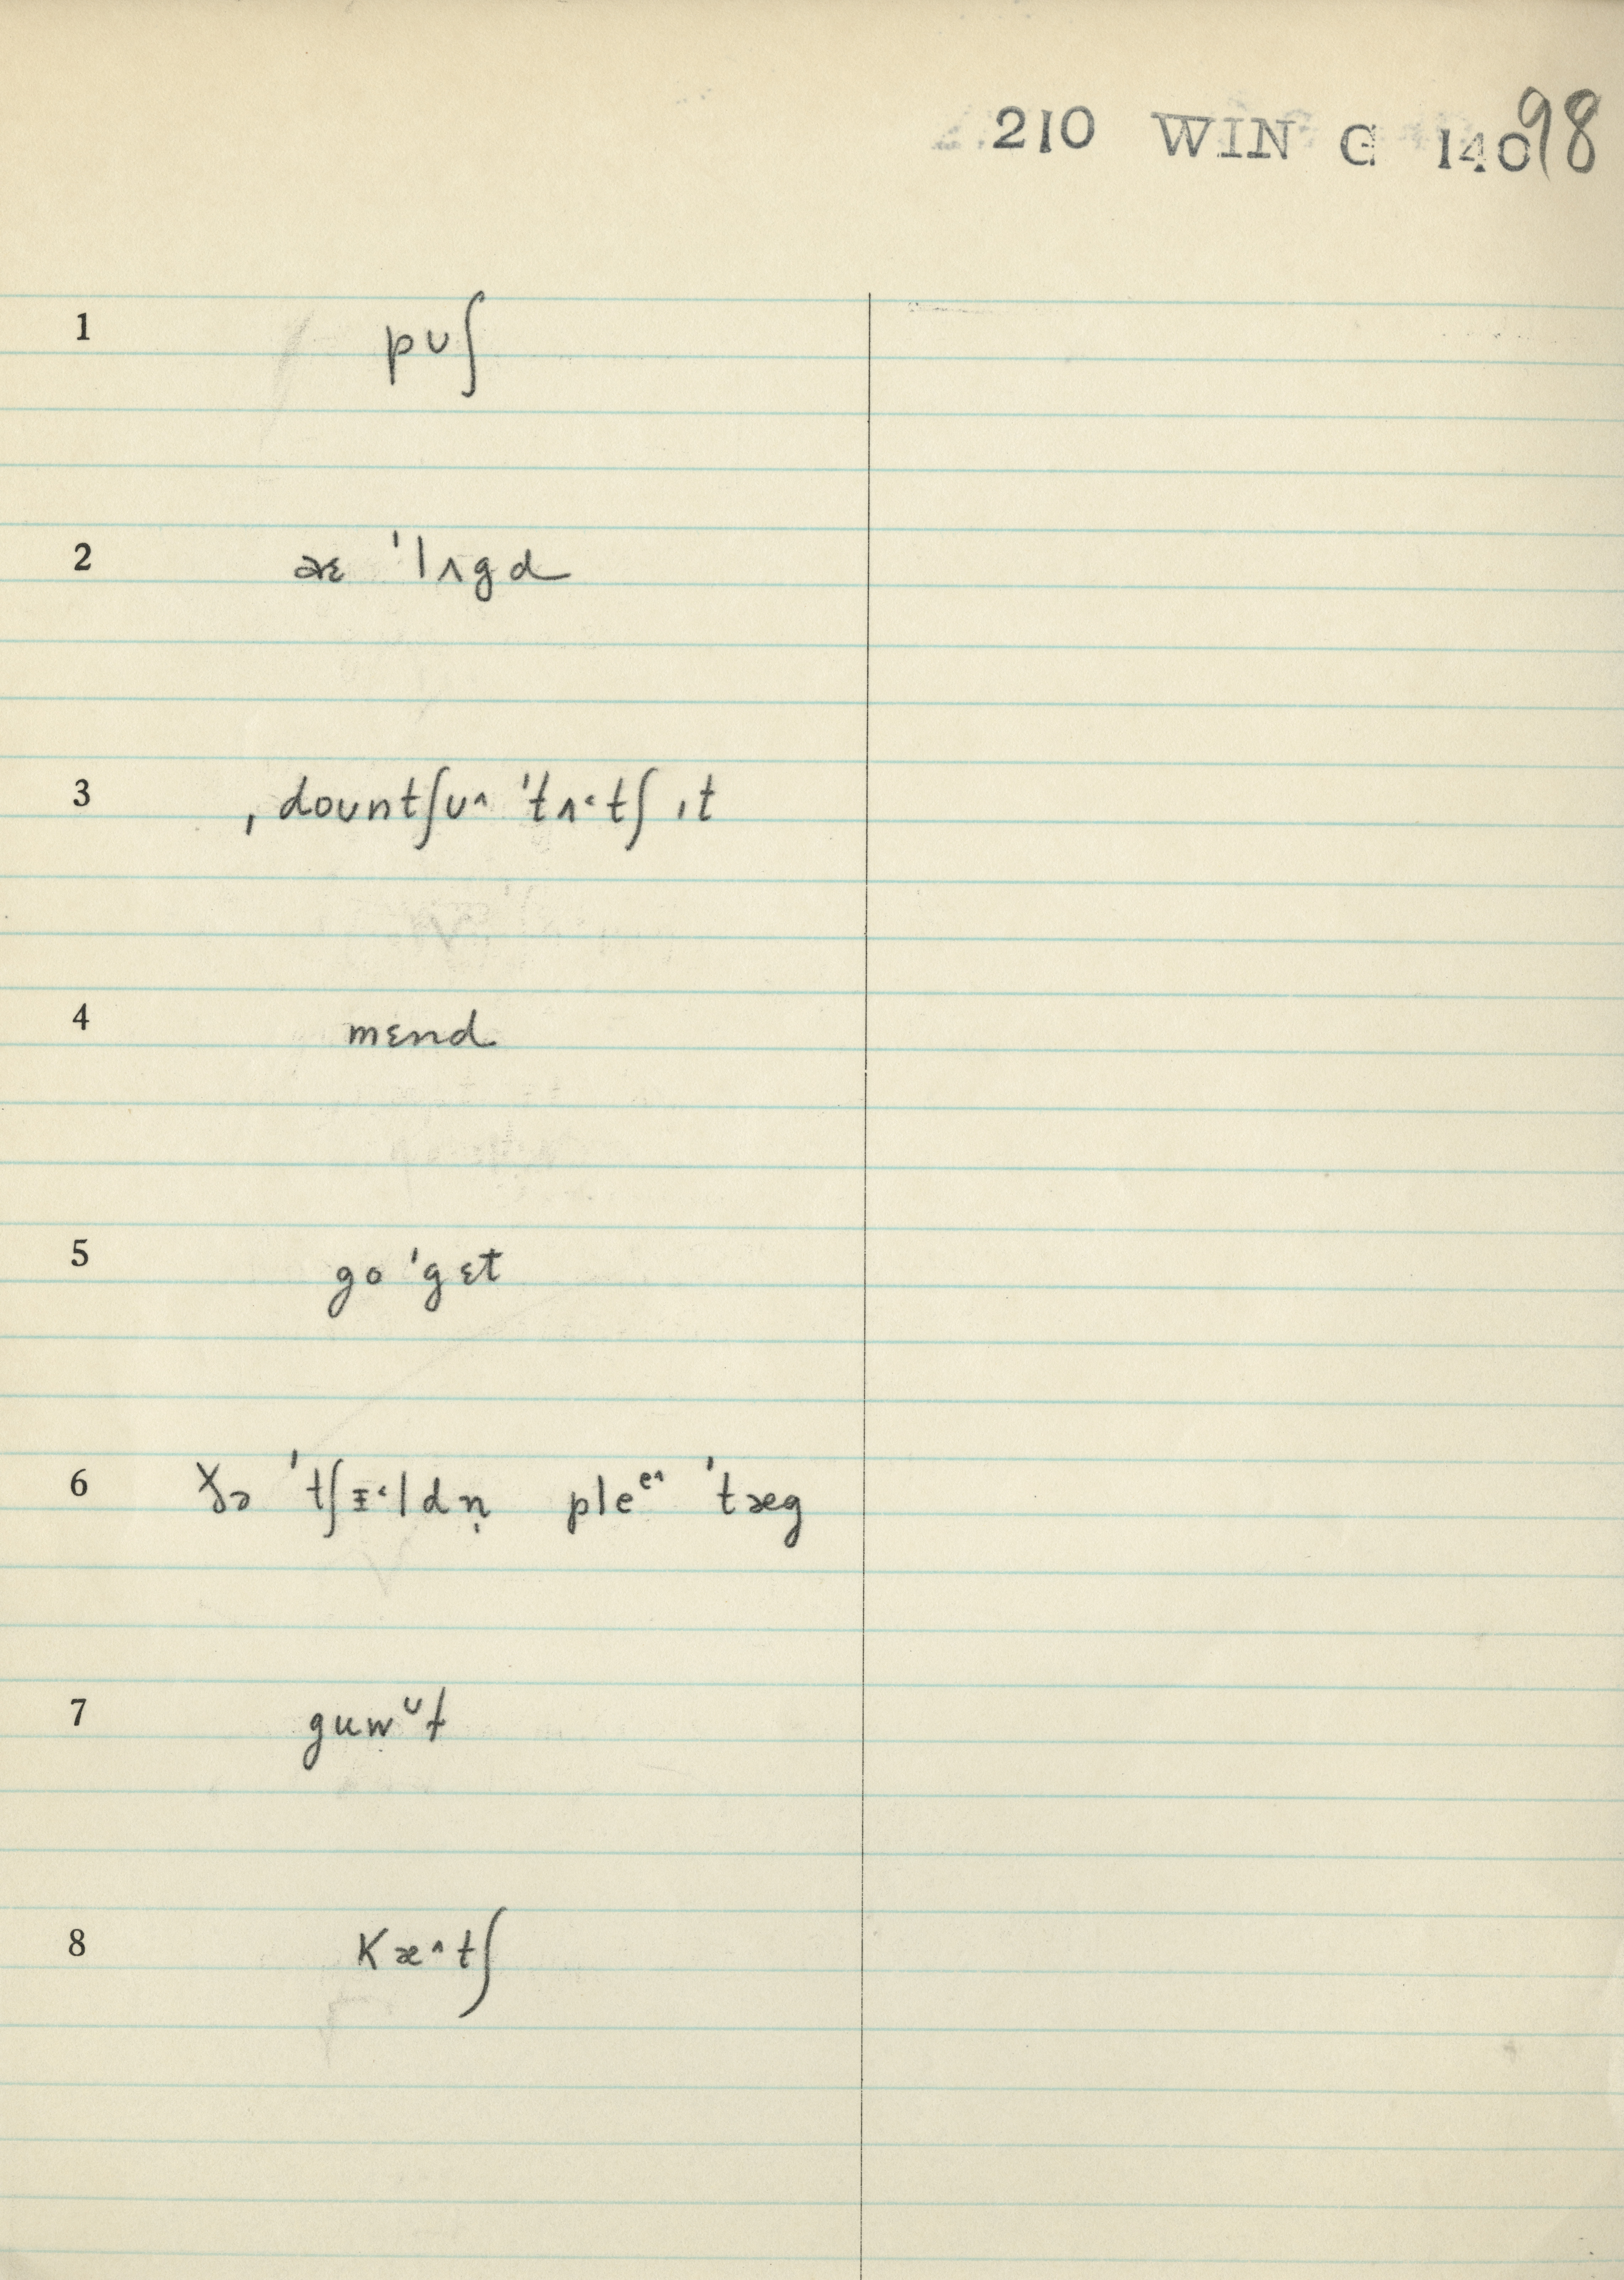 210 WIN G 140 98
1 pʊʃ
2 æɛ ˈlʌgd
3 ˌdoʊntʃʊ˄ ˈtʌ˂tʃ ɪt
4 mɛnd
5 go ˈgɛt
6 ðə ˈtʃɪ˂ldn̩ pleᵉ˄ ˈtæg
7 guwᶷt
8 Kæ˄tʃ